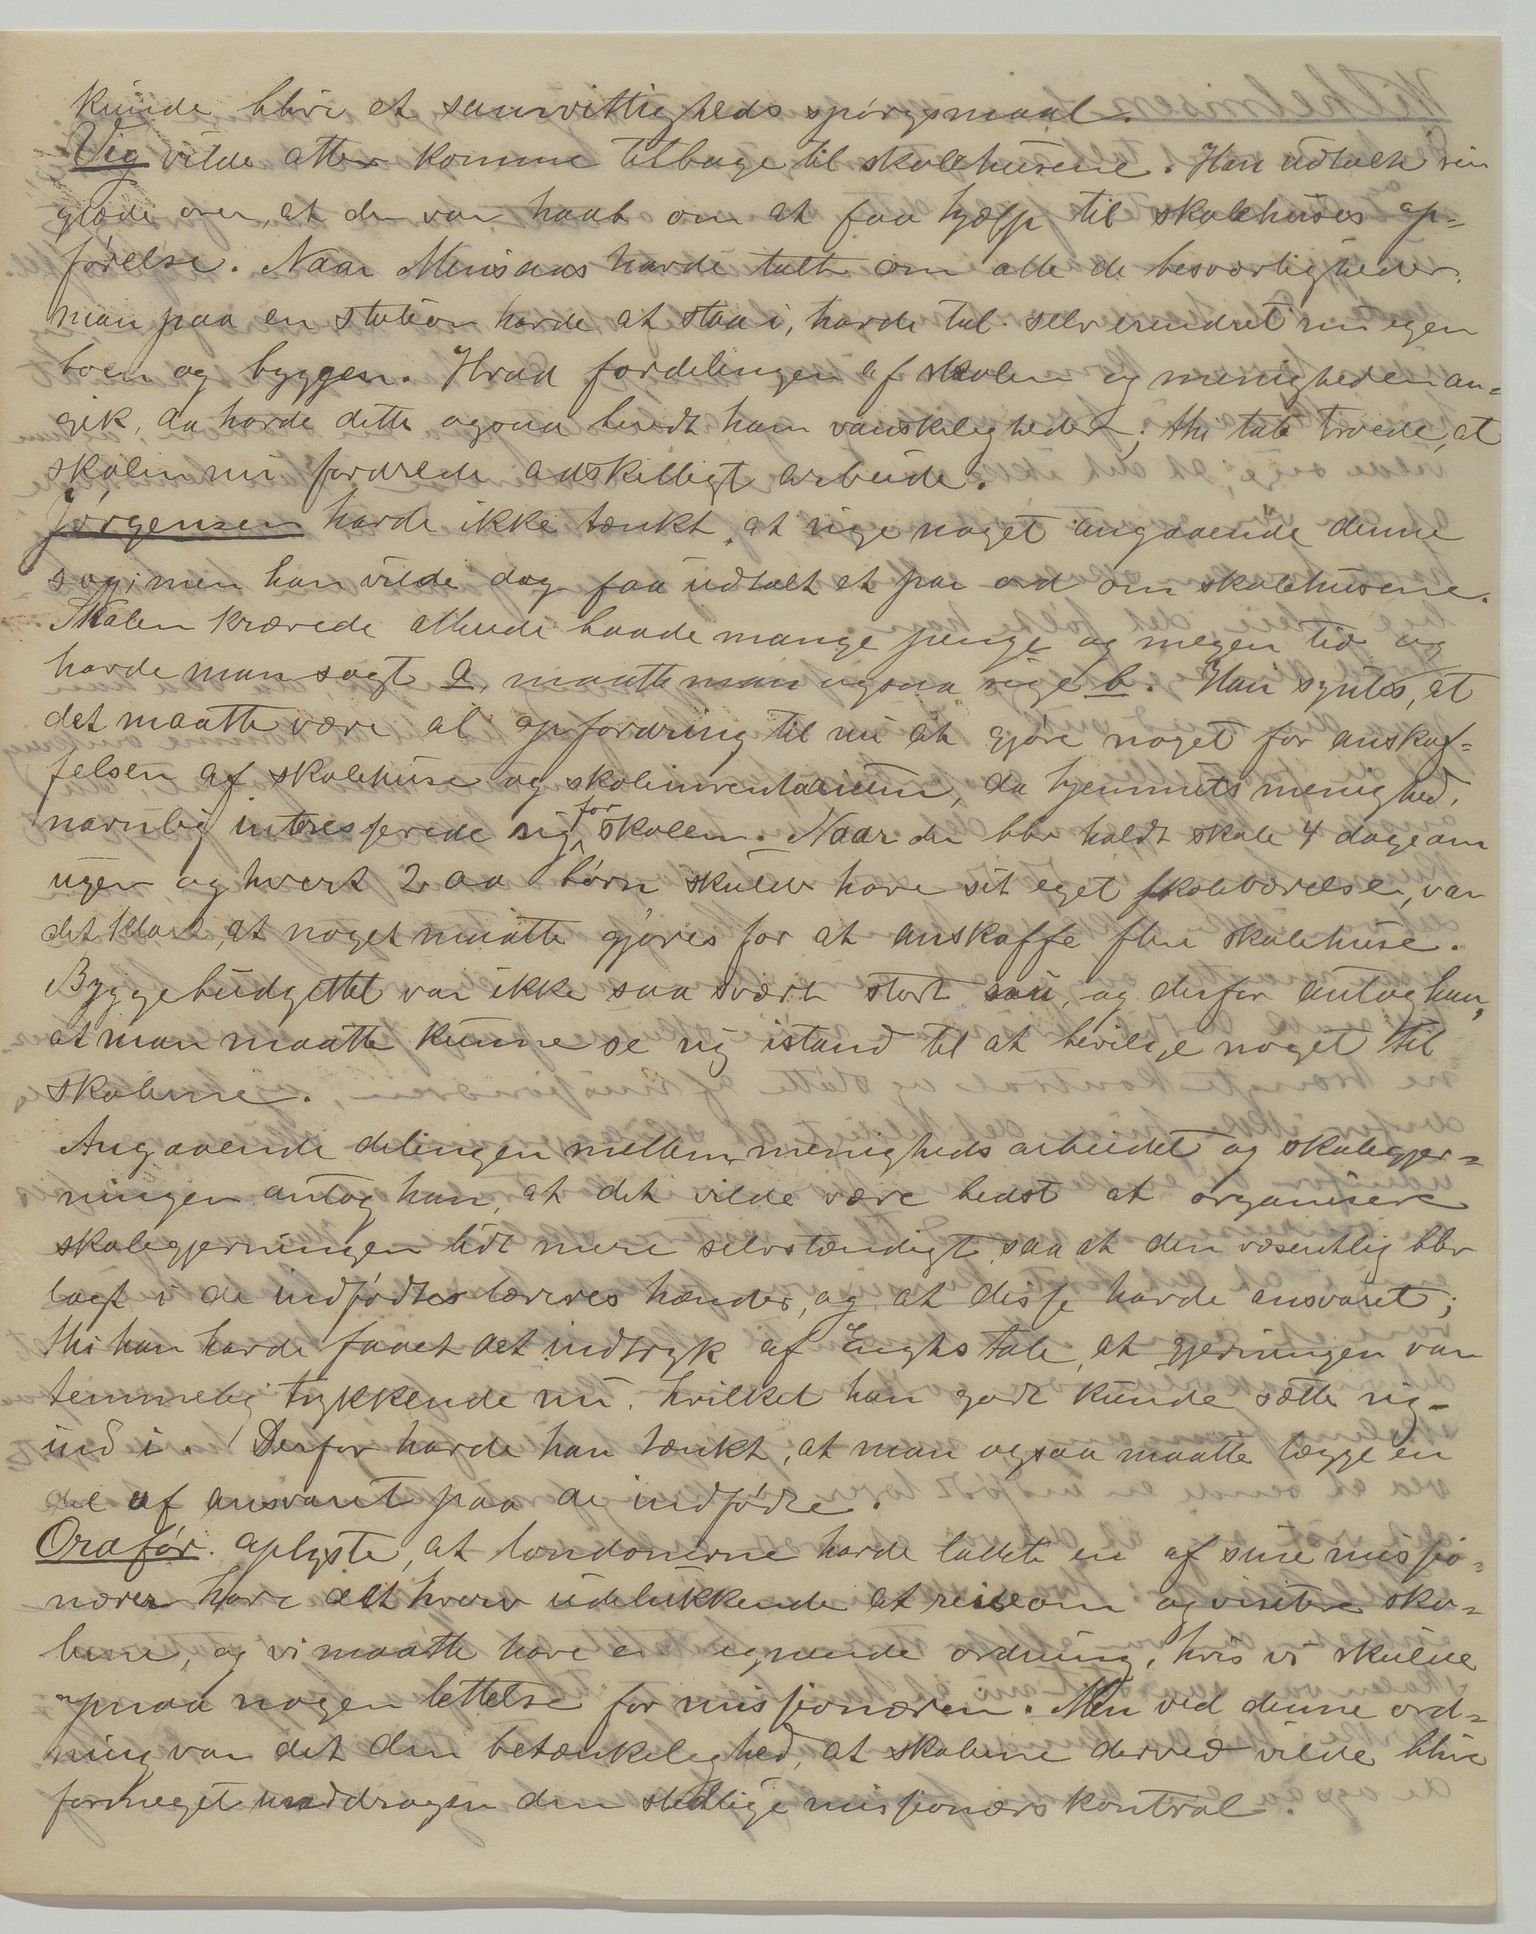 kunde blive et samvittigheds spørgsmaal.
Vig vilde atter komme tilbage til skolehusene. Han udtalte sin
glæde over, at der var haab om at faa hjælp til skolehuses op-
førelse. Naar Minsaas havde talt om alle de besværligheder,
man paa en station havde at staa i, havde tal. selv erindret sin egen
boen og byggen. Hvad fordelingen af skolen og menigheden an-
gik, da havde dette ogsaa beredt ham vanskeligheder; thi tal. troede, at
skolen nu fordrede adskilligt arbeide.
Jørgensen havde ikke tænkt at sige noget angaaende denne
sag; men han vilde dog faa udtalt et par ord om skolehusene.
Skolen krævede allerede baade mange penge og megen tid og
havde man sagt a, maatte man ogsaa sige b. Han syntes, at
det maatte være al opfordring til nu at gjøre noget for anskaf-
felsen af skolehuse og skoleinventarium, da hjemmets menighed
navnlig interesserede sig for skolen. Naar der blev holdt skole 4 dage om
ugen og hvert 200 børn skulde have sit eget skoleværelse, var
det klart, at noget maatte gjøres for at anskaffe flere skolehuse.
Byggebudgettet var ikke saa svært stort nu, og derfor antog han,
at man maatte kunne se sig istand til at bevilge noget til
skolerne.
Angaaende delingen mellem menigheds arbeidet og skolegjer-
ningen antog han, at det vilde være bedst at organisere
skolegjerningen lidt mere selvstændigt, saa at den væsentlig blev
lagt i de indfødtes læreres hænder, og at disse havde ansvaret;
thi han havde faaet det indtryk af Enghs tale, at gjerningen var
temmelig trykkende nu, hvilket han godt kunde sætte sig
ind i. Derfor havde han tænkt, at man ogsaa maatte lægge en
del af ansvaret paa de indfødte.
Ordfør. oplyste, at londonerne havde ladet en af sine missio-
nærer have det hverv udelukkende at reise om og visitere sko-
lerne, og vi maatte have en lignende ordning, hvis vi skulde
opnaa nogen lettelse for missionæren. Men ved denne ord-
ning var det den betænkelighed, at skolerne derved vilde blive
formeget unddragen den stedlige missionærs kontrol.